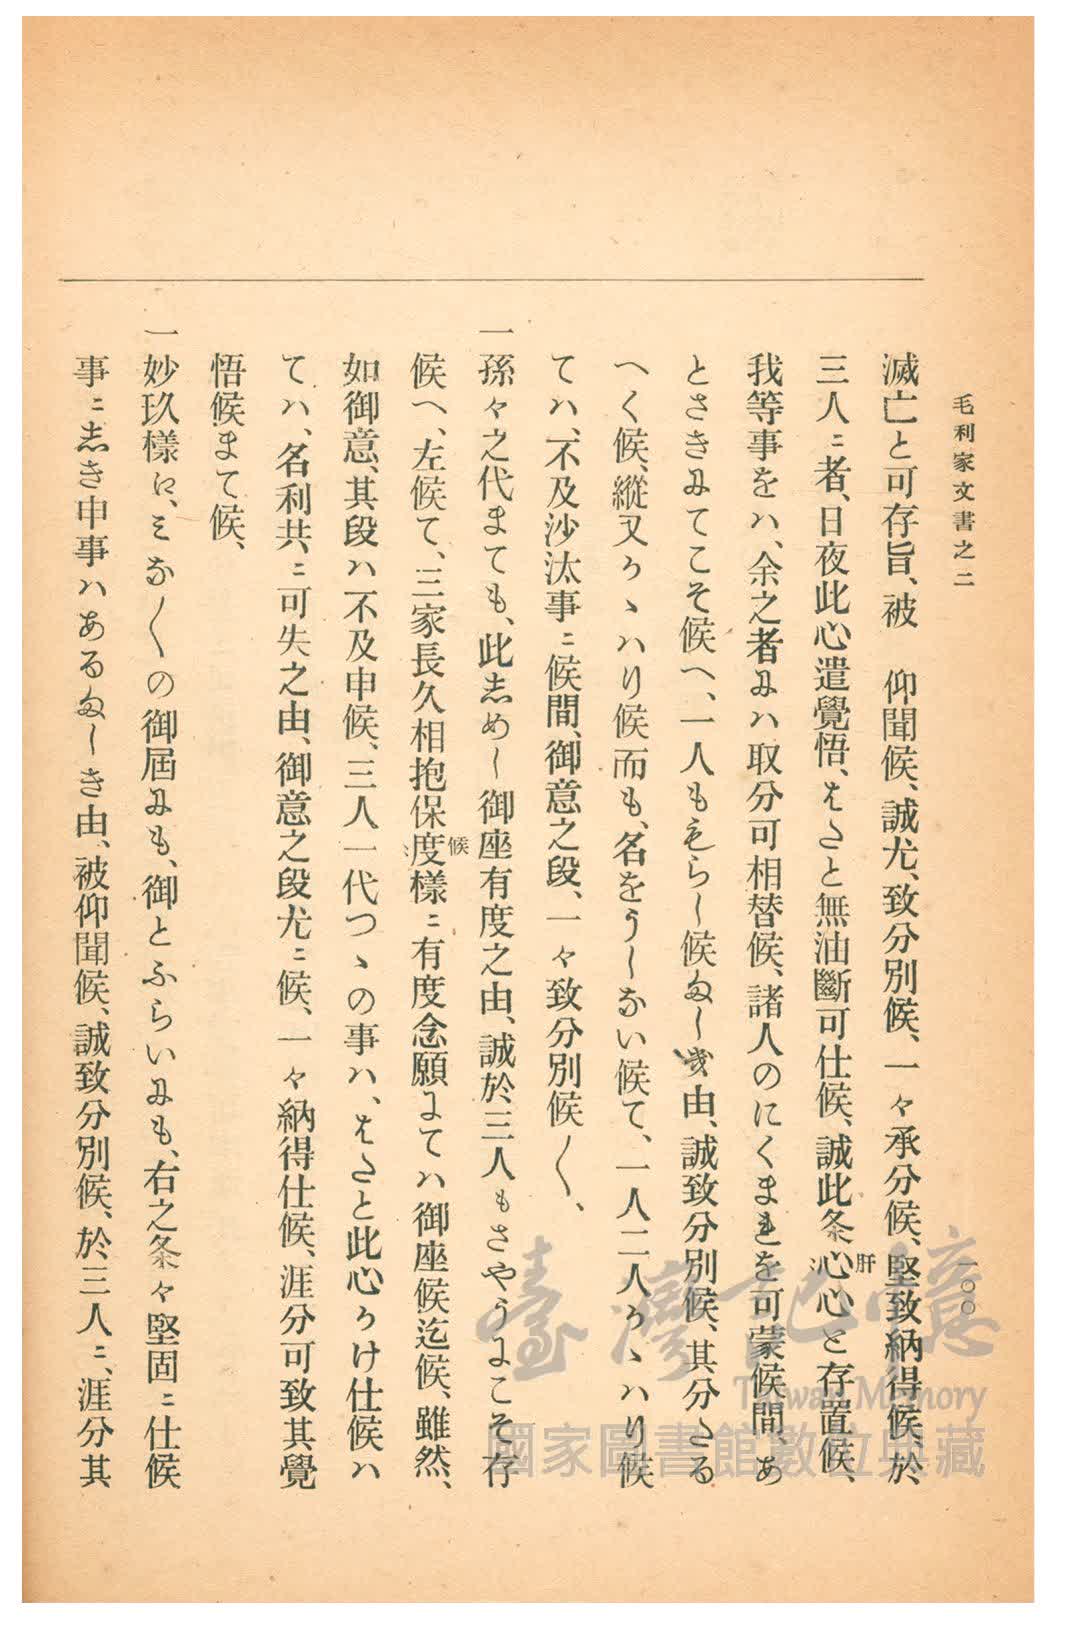 毛利家文書之二
一〇〇
滅亡と可存旨、被　仰聞候、誠尤、致分別候、一々承分候、堅致納得候、於
三人ニ者、日夜此心遣覺悟、はたと無油斷可仕候、誠此条心心と存置候、
肝
我等事をハ、余之者ニハ取分可相替候、諸人のにくまれを可蒙候間、あ
とさきニてこそ候へ、一人ももらし候ましき由、誠致分別候、其分たる
へく候、縱又かゝハり候而も、名をうしない候て、一人二人かゝハり候
てハ、不及沙汰事ニ候間、御意之段、一々致分別候〱、
一孫々之代まても、此しめし御座有度之由、誠於三人もさやうにこそ存
候
候へ、左候て、三家長久相抱保度樣ニ有度念願にてハ御座候迄候、雖然、
如御意、其段ハ不及申候、三人一代つゝの事ハ、はたと此心かけ仕候ハ
てハ、名利共ニ可失之由、御意之段尤ニ候、一々納得仕候、涯分可致其覺
悟候まて候、
一妙玖樣に、ミな〱の御屆にも、御とふらいにも、右之条々堅固ニ仕候
事ニしき申事ハあるましき由、被仰聞候、誠致分別候、於三人ニ、涯分其
臺灣記憶
Taiwan Memory
國家圖書館數位典藏